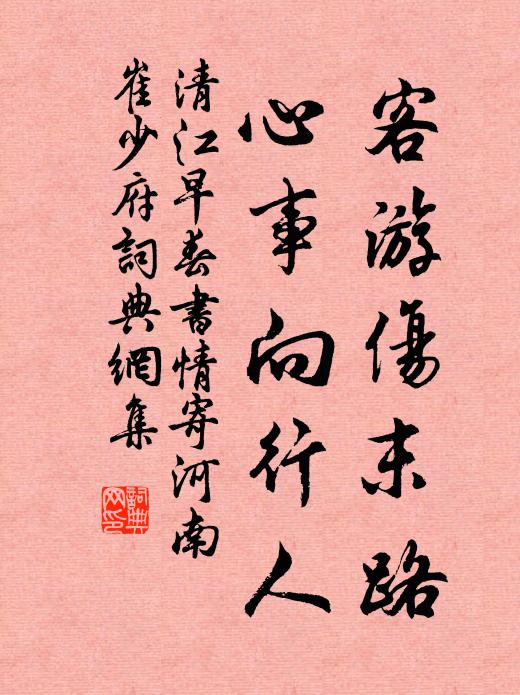 客游傷末路
心事向行人
清江早春書情寄河南
崔少府詞典網集
詞典
网印